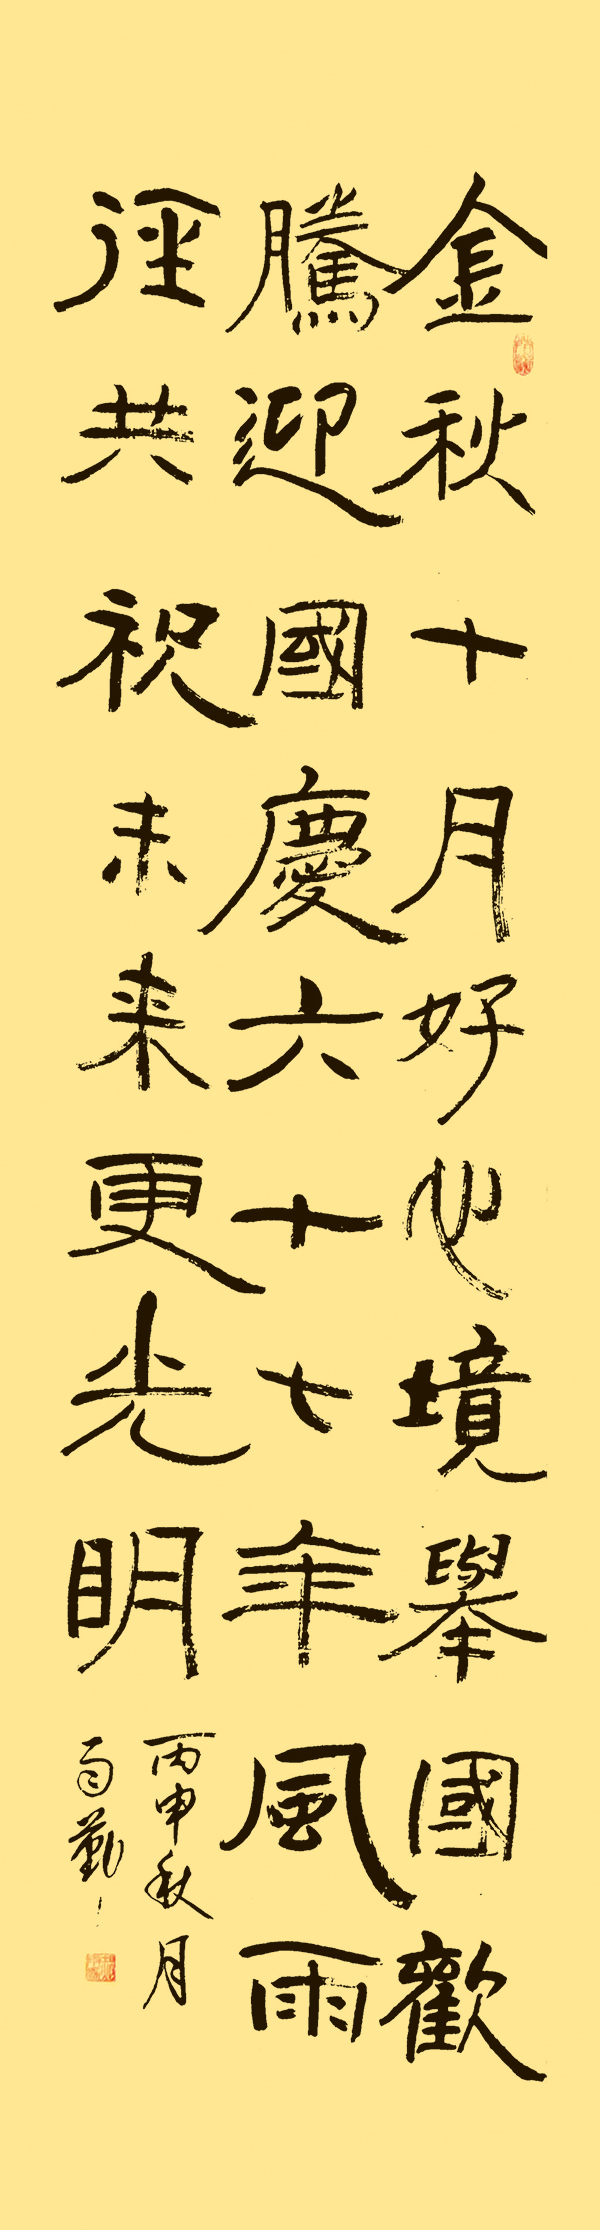 金秋十月好心境舉國歡
騰迎國慶六十七年風雨
徑共祝未来更光明
丙申秋月
勤